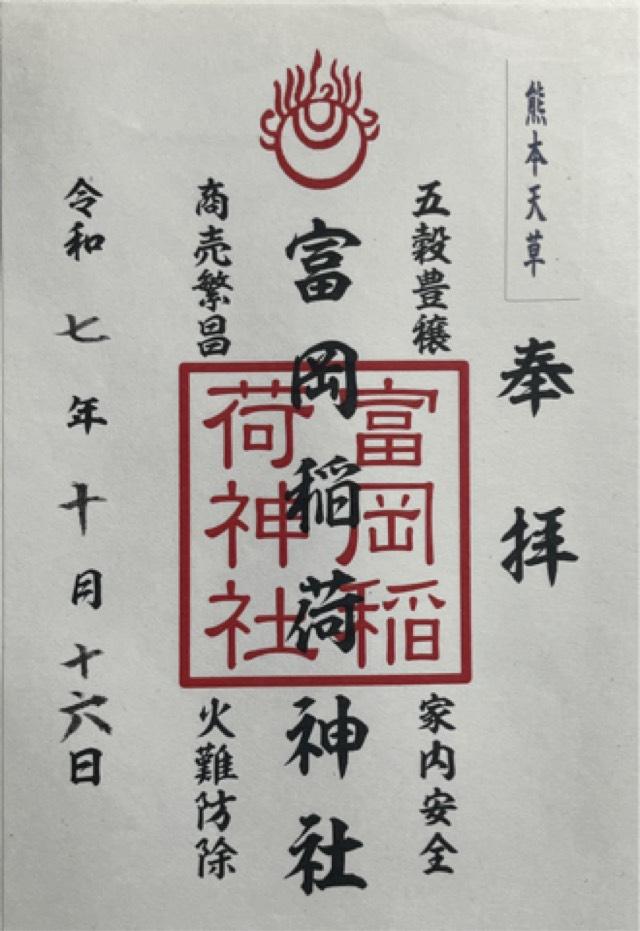 熊本天草
奉拝
五穀豊穣
家内安全
富岡稲荷神社
富岡稲
荷神社
商売繁昌
火難防除
令和七年十月十六日